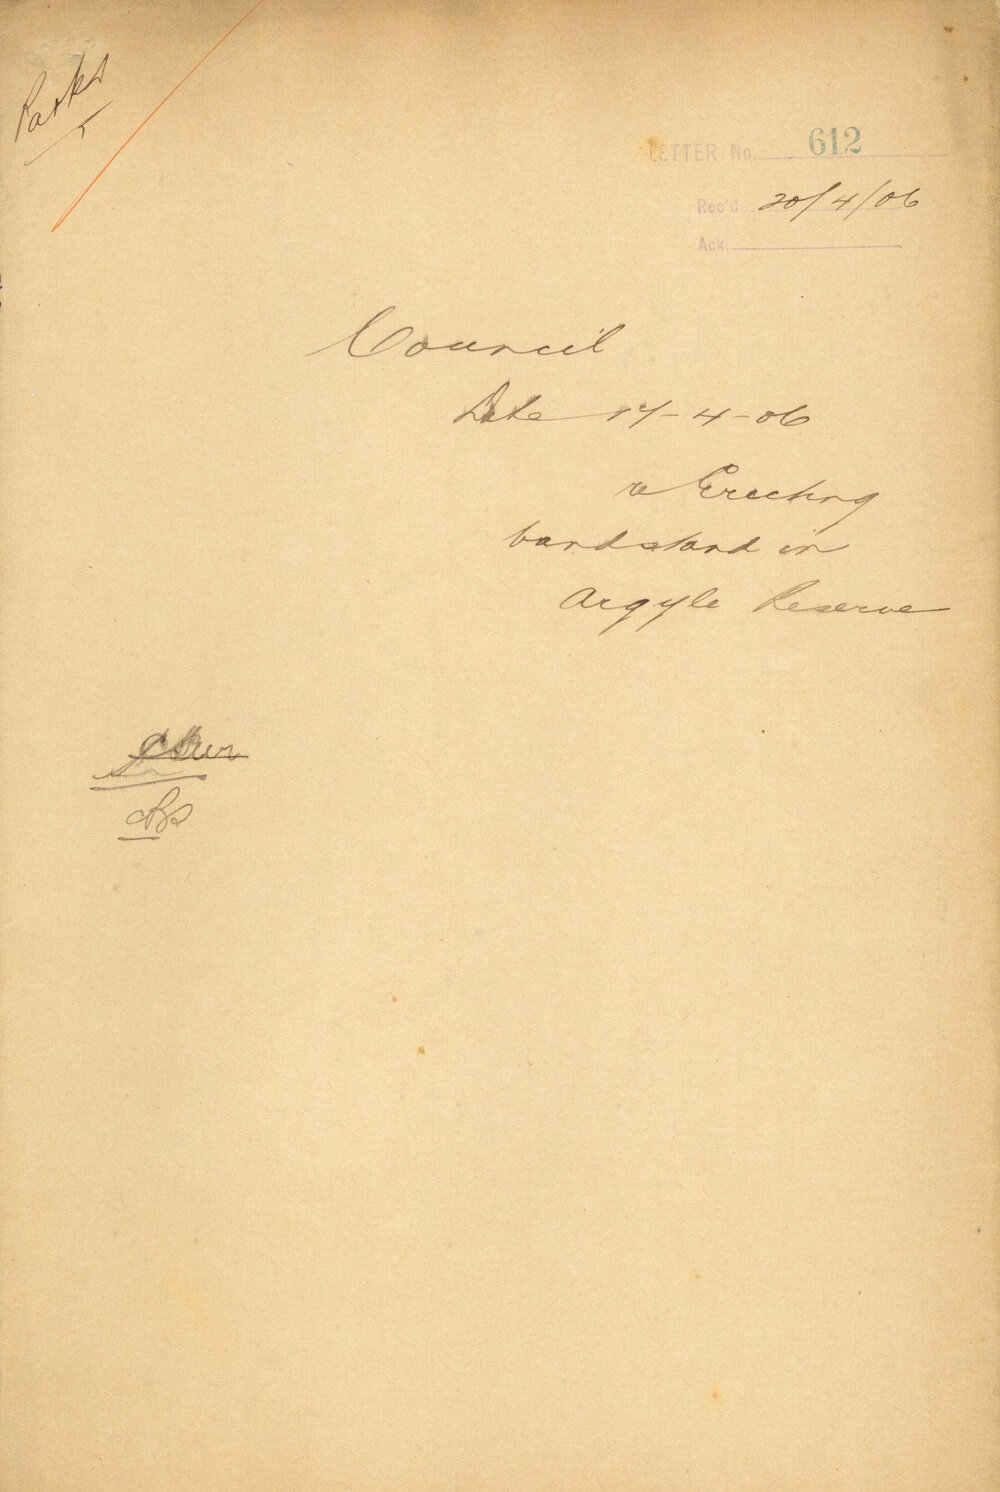 Parks
LETTER No. 612
Rec'd 20/4/06
Ack.
Council
Date 17-4-06
re Erecting
bandstand in
Argyle Reserve